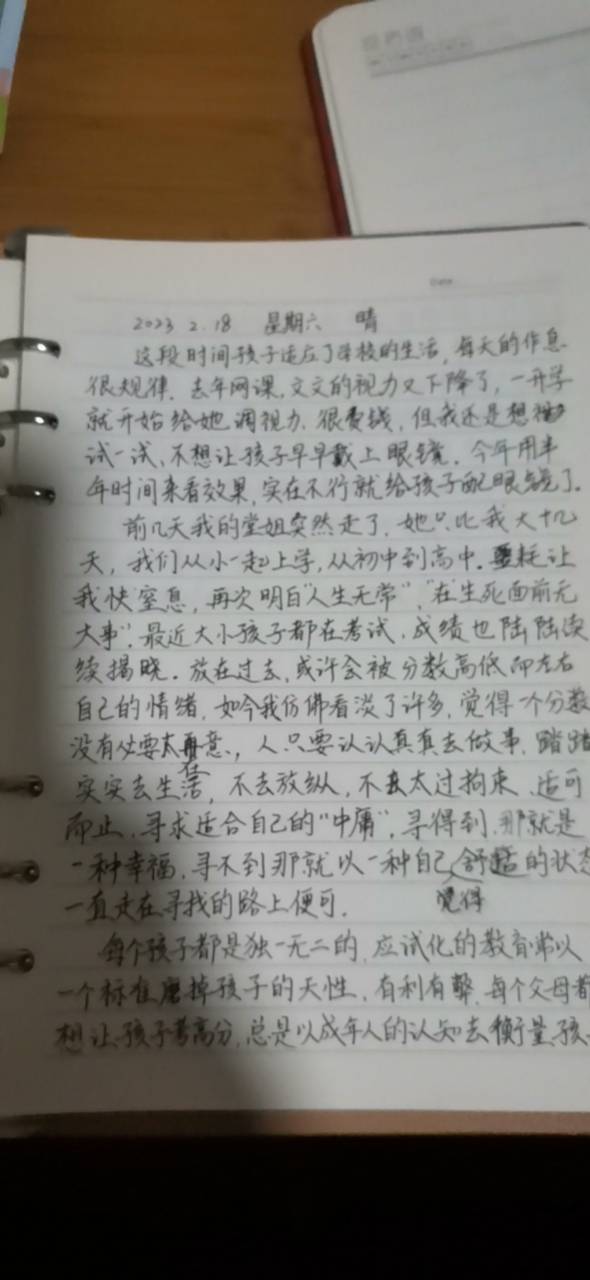 Date
2023 2.18 星期六 晴
这段时间孩子适应了学校的生活,每天的作息
很规律.去年网课,文文的视力又下降了,一开学
就开始给她调视力.很费钱,但我还是想
试一试,不想让孩子早早戴上眼镜.今年用半
年时间来看效果,实在不行就给孩子配眼镜了.
前几天我的堂姐突然走了,她只比我大十几
天,我们从小一起上学,从初中到高中.噩耗让
我快窒息,再次明白"人生无常","在生死面前无
大事".最近大小孩子都在考试,成绩也陆陆
续揭晓.放在过去,或许会被分数高低而左右
自己的情绪,如今我仿佛看淡了许多,觉得一个分数
没有必要太在意,人只要认认真真去做事,踏踏
实实去生活,不去放纵,不去太过拘束,适可
而止,寻求适合自己的"中庸",寻得到,那就是
一种幸福,寻不到那就以一种自己觉得舒适的状态
一直走在寻找的路上便可.
每个孩子都是独一无二的,应试化的教育常以
一个标准磨掉孩子的天性,有利有弊,每个父母都
想让孩子考高分,总是以成年人的认知去衡量孩